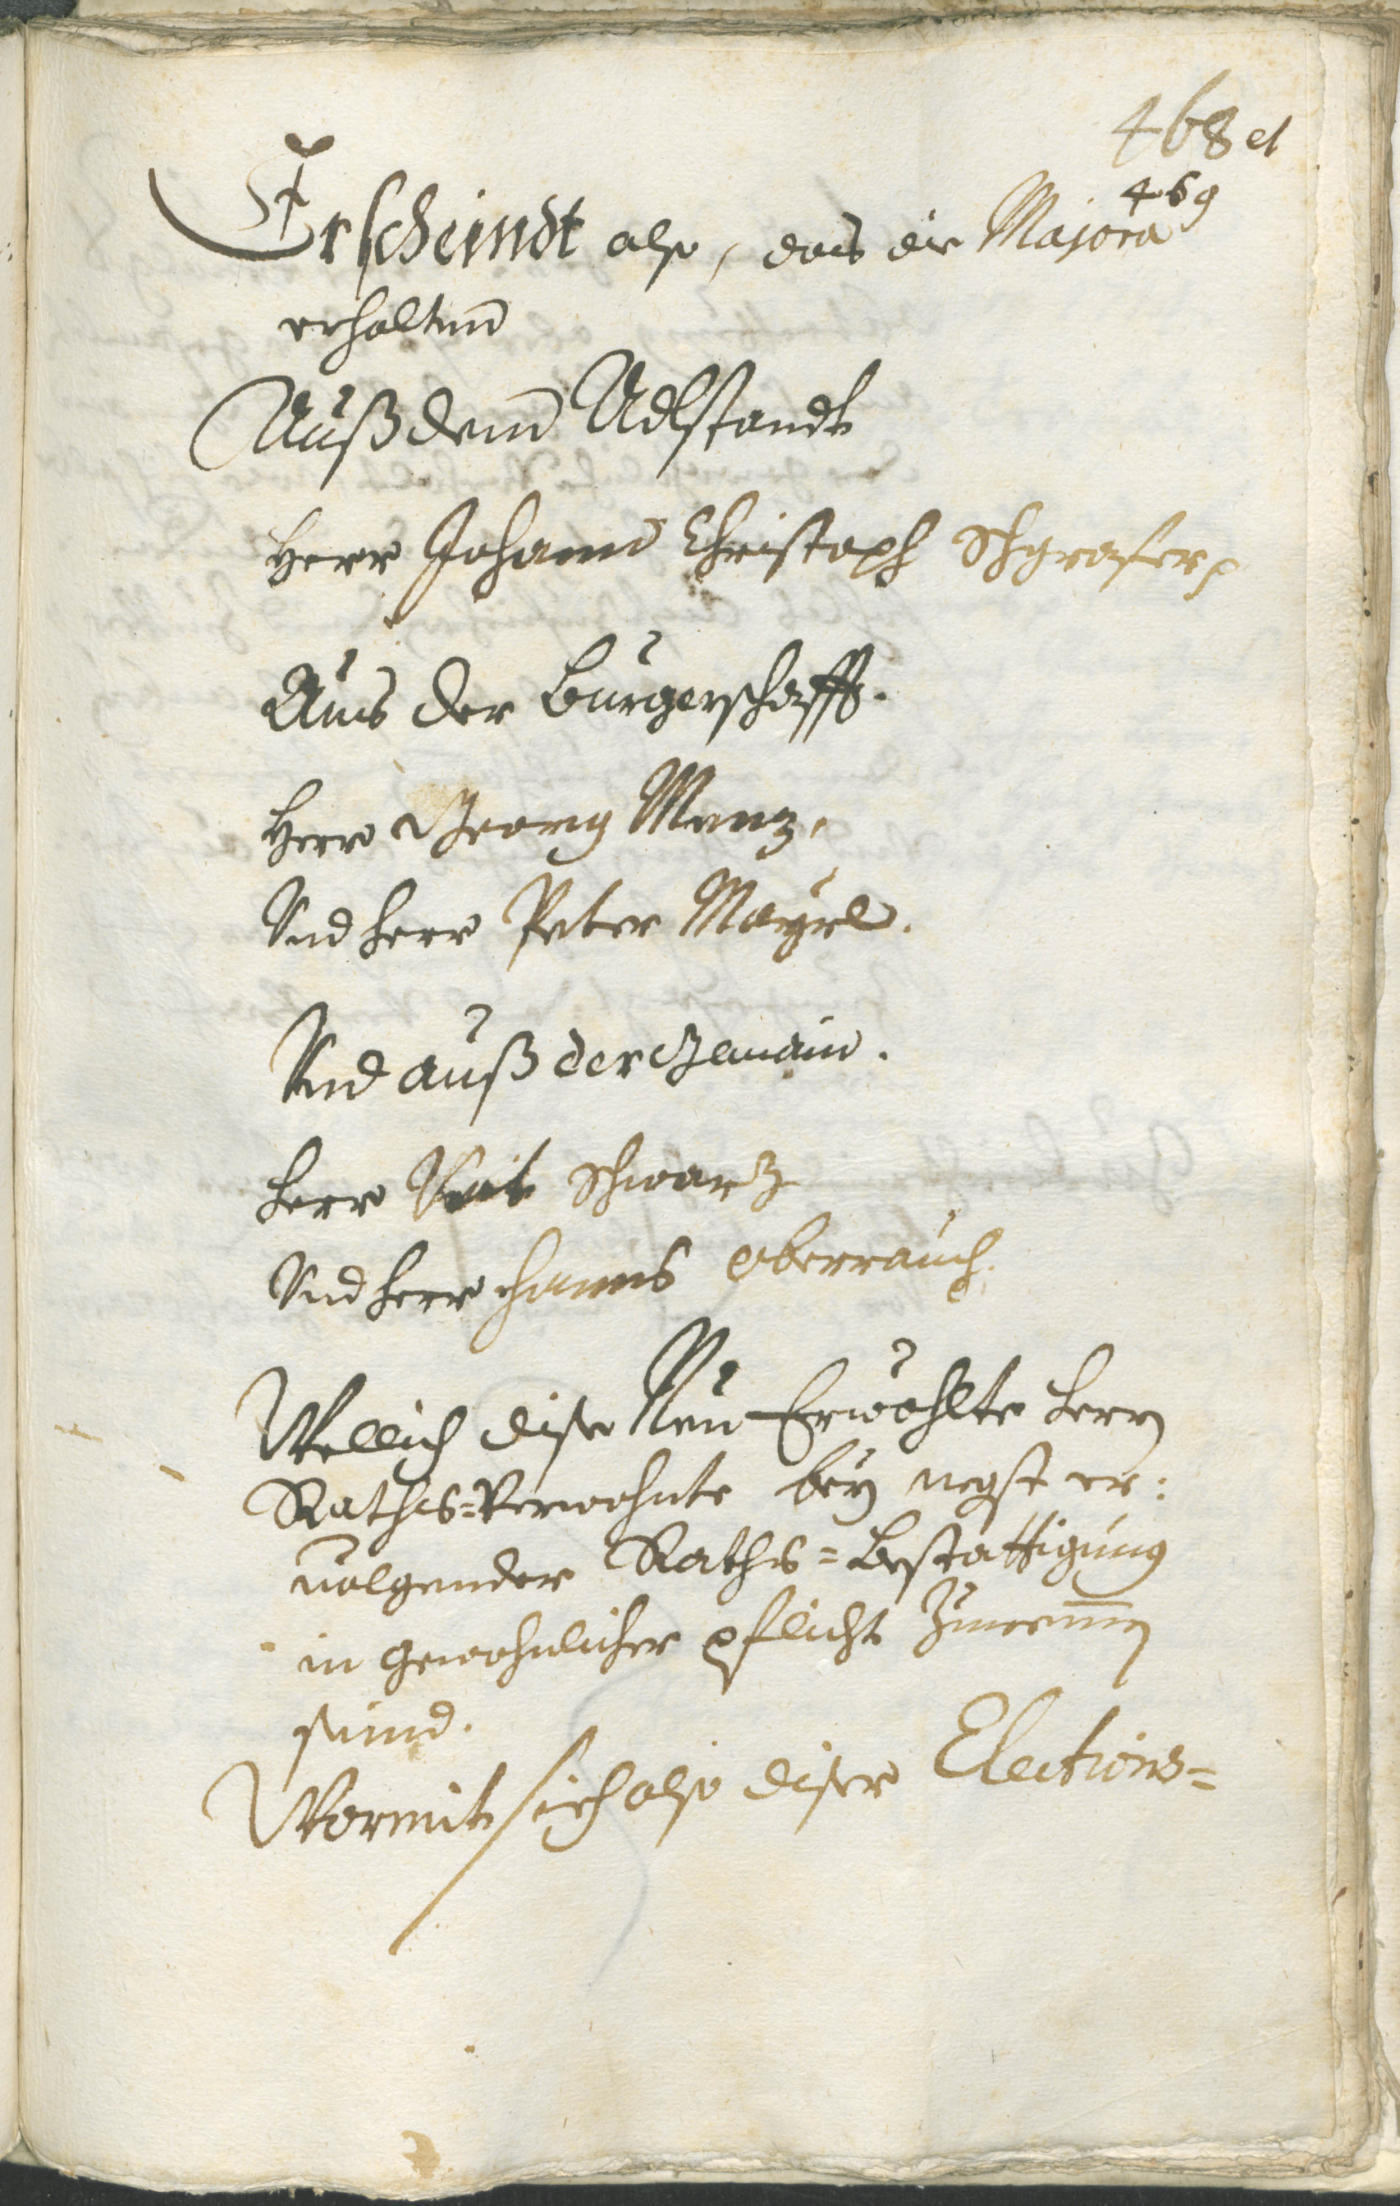 468 et
469
Erscheindt also, das die Majora
erhalten
Auß dem Adlstandt
Herr Johann Christoph Schgrafer
Aus der Burgerschafft.
Herr Georg Menz,
Und Herr Peter Mayrl.
Und auß der Gemain.
Herr Veit Schwarz
Und Herr Hanns Oberrauch.
Wellich dise Neu-Erwöhlte Herrn
Raths-Verwohnte bey negst er:
uolgender Raths-Bestattigung
in gewohnlicher pflicht Zunemmen
seind.
Wormit sich also diser Elections=